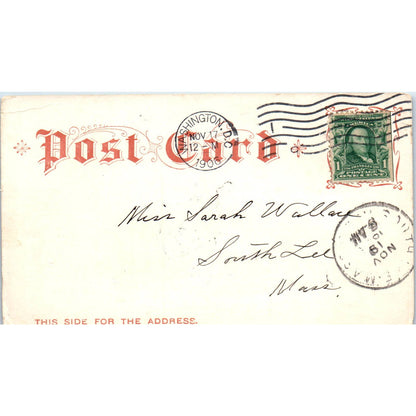 WASHINGTON, D.C.
NOV 17
12-M
1906
Post Card
1
Miss Sarah Wallace
South Lee
Mass.
SOUTH
NOV
19
8 AM
THIS SIDE FOR THE ADDRESS.